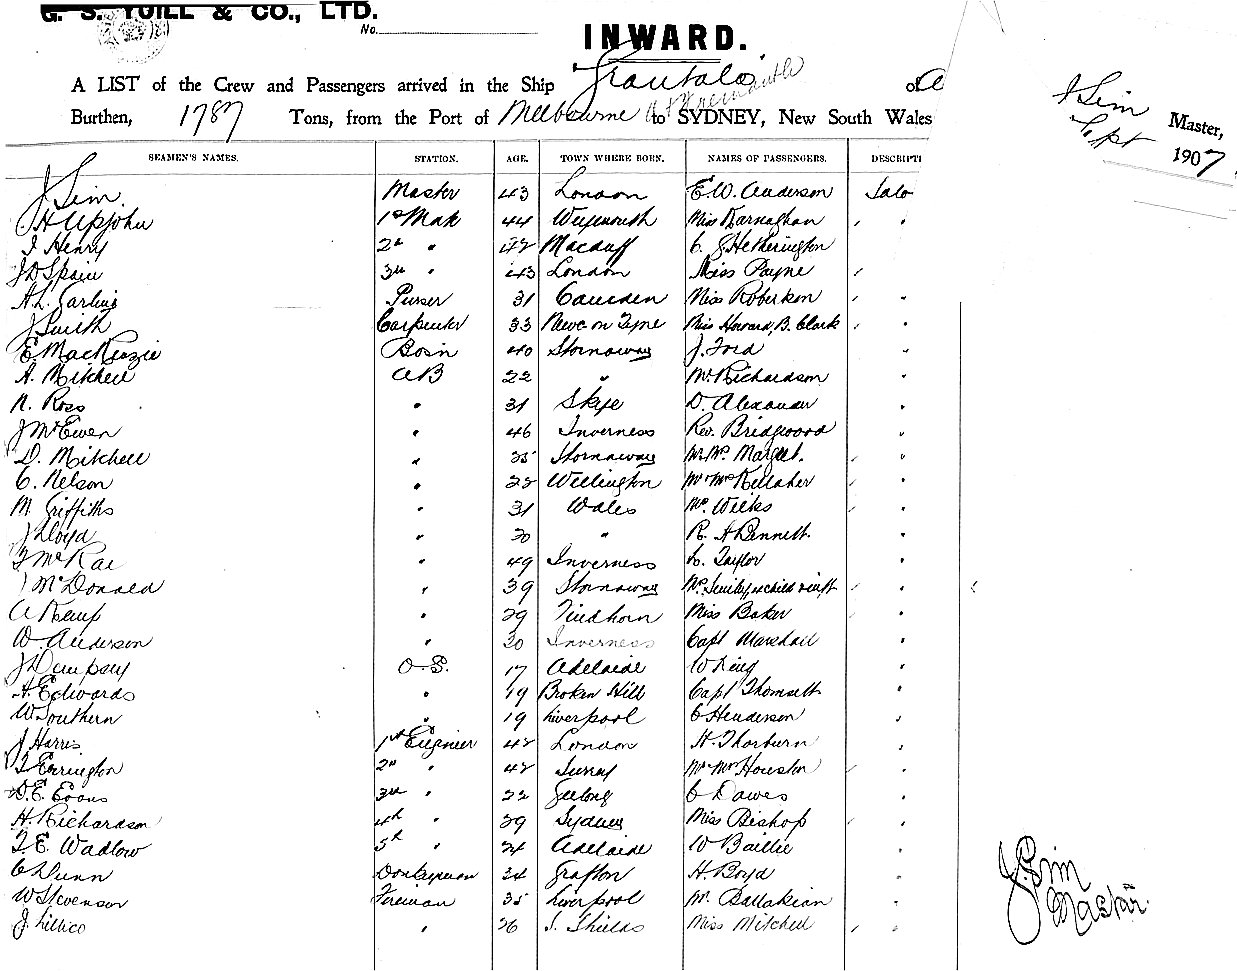 G. S. YUILL & CO., LTD.
No.
INWARD.
A LIST of the Crew and Passengers arrived in the Ship Grantala of
Burthen, 1787 Tons, from the Port of Melbourne & Fremantle to SYDNEY, New South Wales
J Sim Master,
Sept 1907
SEAMEN'S NAMES. STATION. AGE. TOWN WHERE BORN. NAMES OF PASSENGERS. DESCRIPTI
J Sim Master 43 London E. W. Anderson Salo
H Upjohn 1st Mate 44 Weymouth Miss Karnaghan
J Henry 2nd " 42 Macduff C. J. Hetherington
J D Spain 3rd " 43 London Miss Payne
A. L. Garling Purser 31 Camden Miss Robertson
J Smith Carpenter 33 Newc on Tyne Miss Howard, B. Clark
E. MacKenzie Bosin 40 Stornoway J. Ford
A. Mitchell AB 22 " Mr Richardson
N. Ross " 31 Skye D. Alexander
J McEwen " 46 Inverness Rev. Bridgwood
D. Mitchell " 35 Stornoway Mr Mrs
C. Nelson " 22 Wellington Mr Mrs Kellaher
M. Griffiths " 31 Wales Mrs Wilks
J Lloyd " 30 " R. A Bennett
F McRae " 49 Inverness L. Taylor
J McDonald " 39 Stornoway Mrs child
A Kemp " 29 Findhorn Miss Baker
W. Anderson " 30 Inverness Capt Marshall
J Dempsey O.S. 17 Adelaide W King
A. Edwards " 19 Broken Hill Capt Thomsett
W Southern " 19 Liverpool C Henderson
J Harris 1st Engineer 42 London H. Thorburn
J Errington 2nd " 42 Surrey Mr Mrs Houston
D. E. Evans 3rd " 22 Geelong C Dawes
H. Richardson 4th " 29 Sydney Miss Bishop
F. E. Wadlow 5th " 24 Adelaide W Baillie
C Dunn Donkeyman 34 Grafton H. Boyd
W Stevenson Fireman 35 Liverpool M. Ballakian
J. Lillico " 26 S. Shields Miss Mitchell
J. Sim
Master